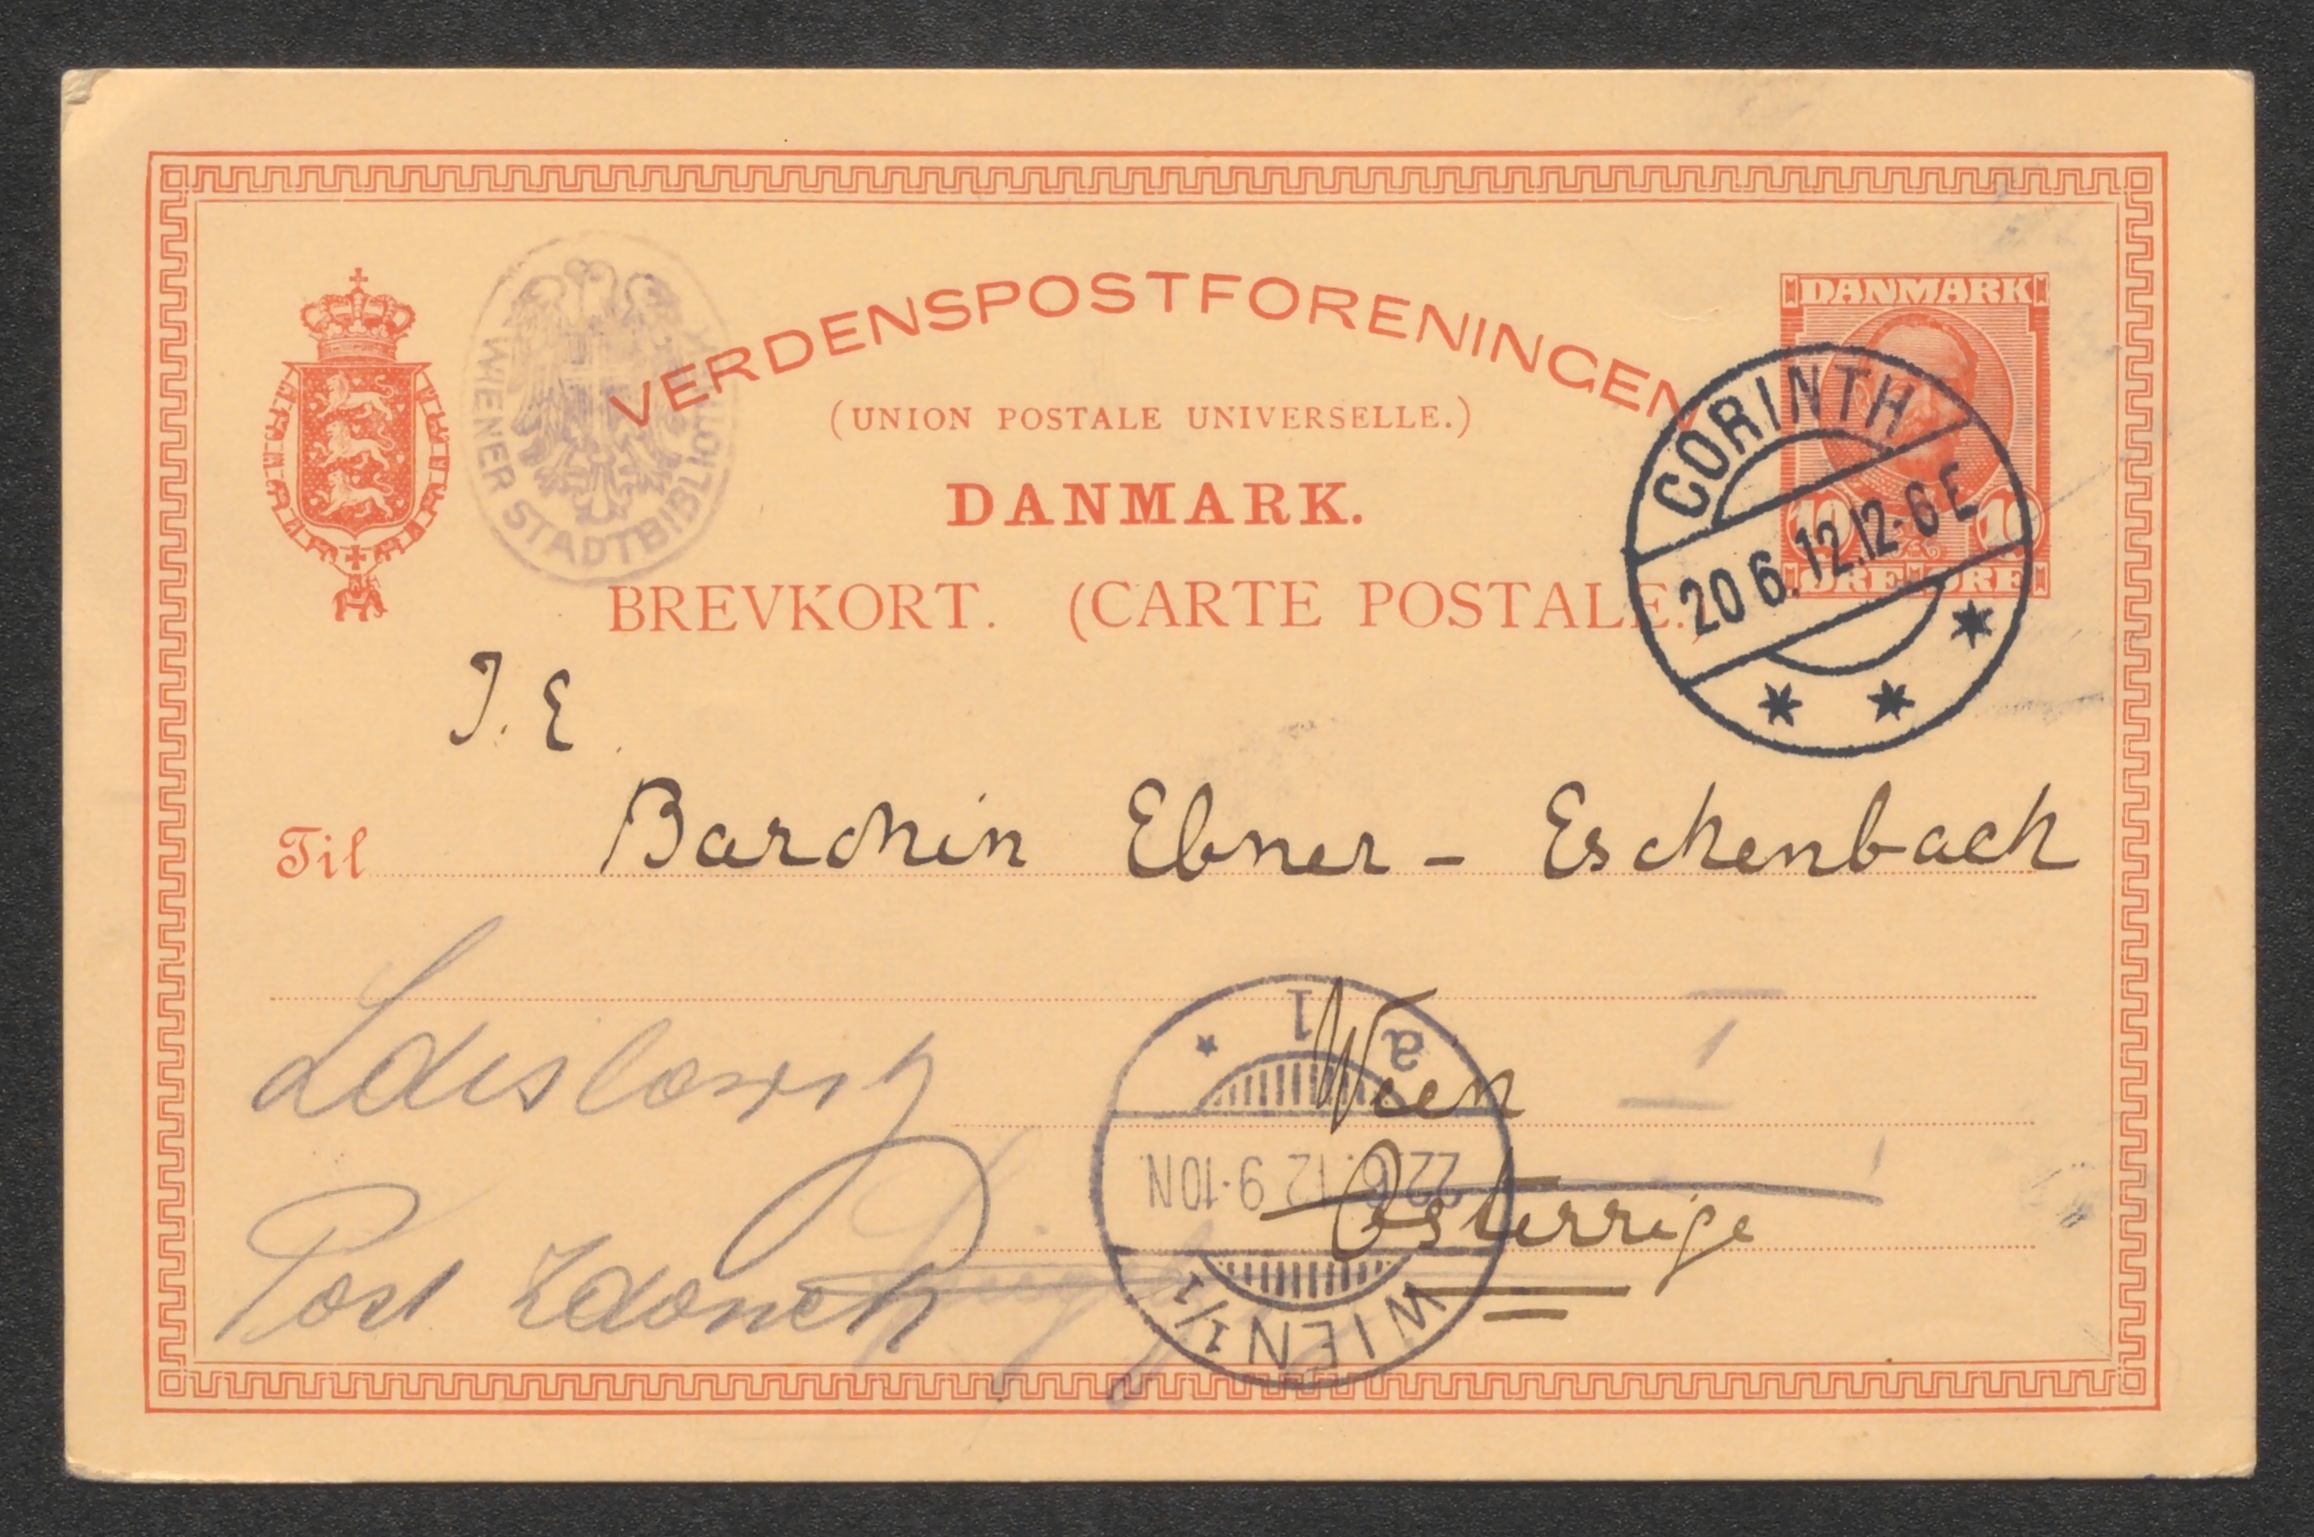 VERDENSPOSTFORENINGEN
(UNION POSTALE UNIVERSELLE.)
DANMARK.
BREVKORT. (CARTE POSTALE.)
WIENER STADTBIBLIOTHEK
DANMARK
10 10
ØRE ØRE
CORINTH
20 6. 12.12-6 E
I. E.
Til Baronin Ebner - Eschenbach
Wien
I
Østerrige
Post Zdounek
1 a
22.6.12 9-10N
WIEN 1/1